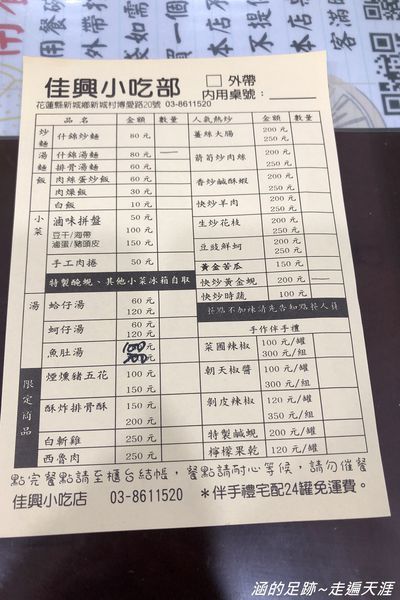 佳興小吃部 □外帶
內用桌號：
花蓮縣新城鄉新城村博愛路20號 03-8611520
品名 金額 數量 人氣熱炒 金額 數量
炒麵 什錦炒麵 80元
湯麵 什錦湯麵 80元
排骨湯麵 60元
飯 肉絲蛋炒飯 60元
肉燥飯 30元
白飯 10元
小菜 滷味拼盤 50元
豆干/海帶 100元
滷蛋/豬頭皮 150元
手工肉捲 50元
特製醃蜆、其他小菜冰箱自取
湯 蛤仔湯 60元
120元
蚵仔湯 60元
120元
魚肚湯 100
限定商品 煙燻豬五花 100元
150元
酥炸排骨酥 150元
200元
白斬雞 250元
西魯肉 250元
薑絲大腸 200元
250元
箭筍炒肉絲 200元
250元
香炒鹹酥蝦 200元
250元
快炒羊肉 200元
250元
生炒花枝 200元
250元
豆豉鮮蚵 200元
250元
黃金苦瓜 150元
快炒黃金蜆 200元
快炒時蔬 100元
餐點不加辣請先告知點餐人員
手作伴手禮
菜圃辣椒 100元/罐
300元/組
朝天椒醬 100元/罐
300元/組
剝皮辣椒 120元/罐
350元/組
特製鹹蜆 200元/罐
檸檬果乾 120元/罐
點完餐點請至櫃台結帳，餐點請耐心等候，請勿催餐
佳興小吃店 03-8611520 *伴手禮宅配24罐免運費。
涵的足跡~走遍天涯